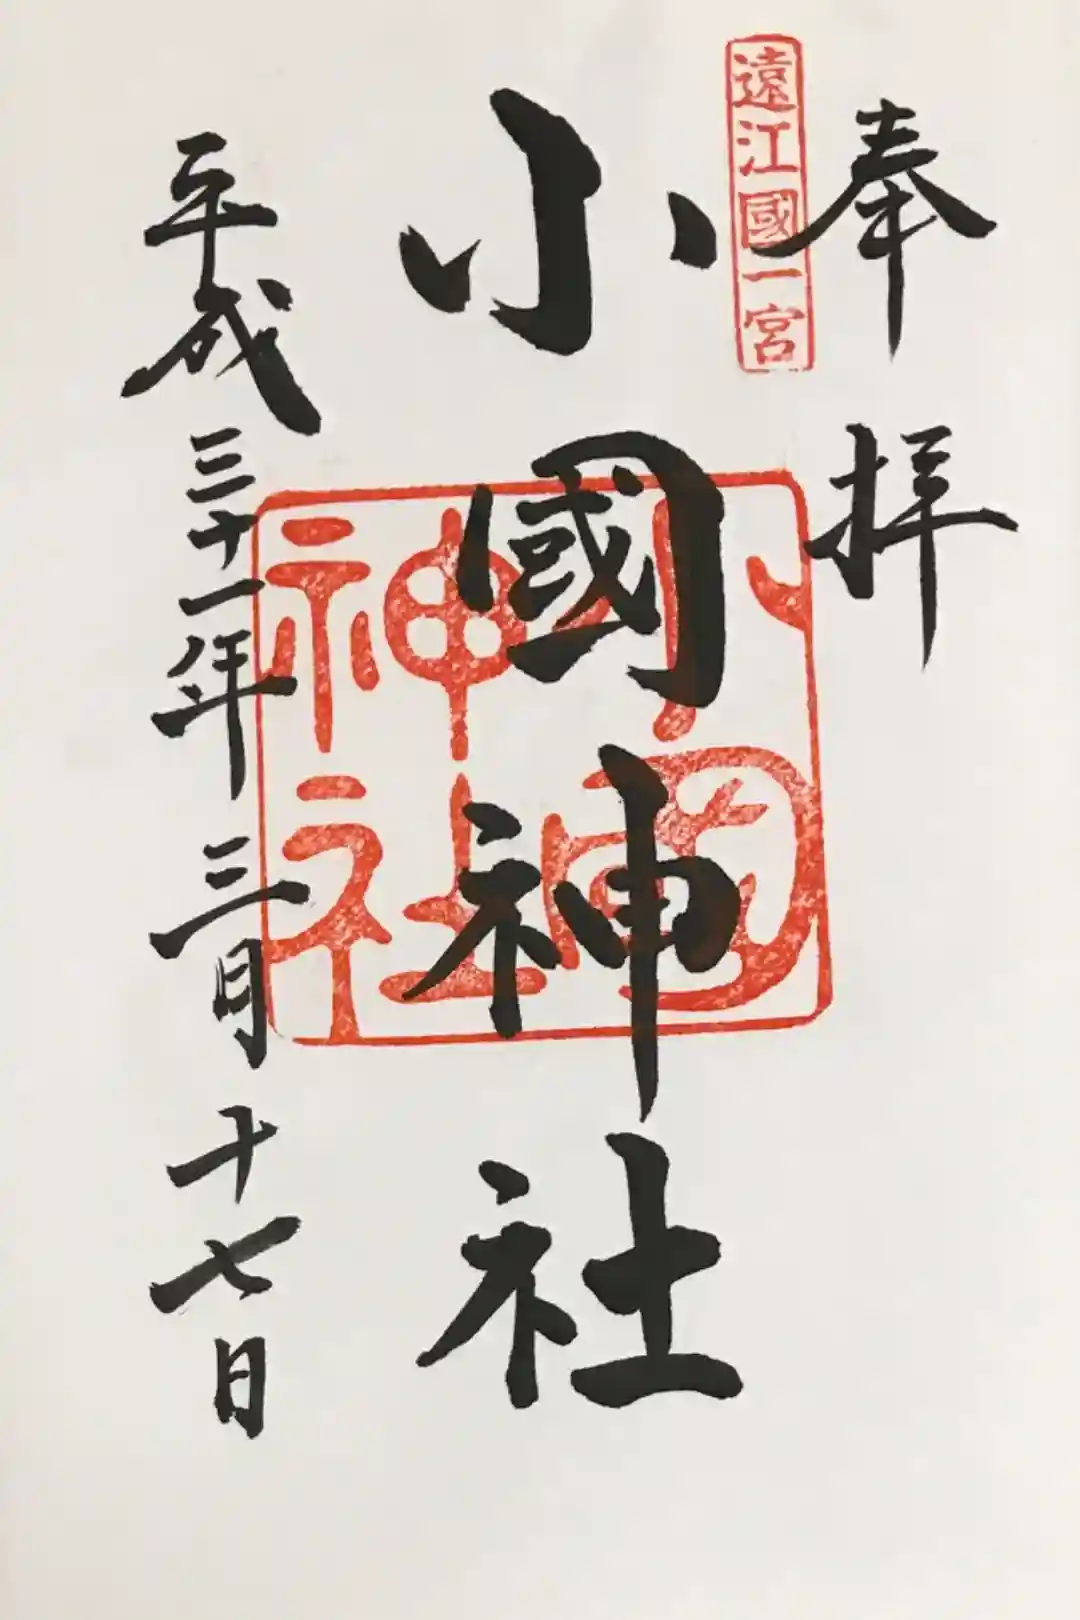 奉拝
遠江國一宮
小國神社
小國神社
平成三十一年三月十七日